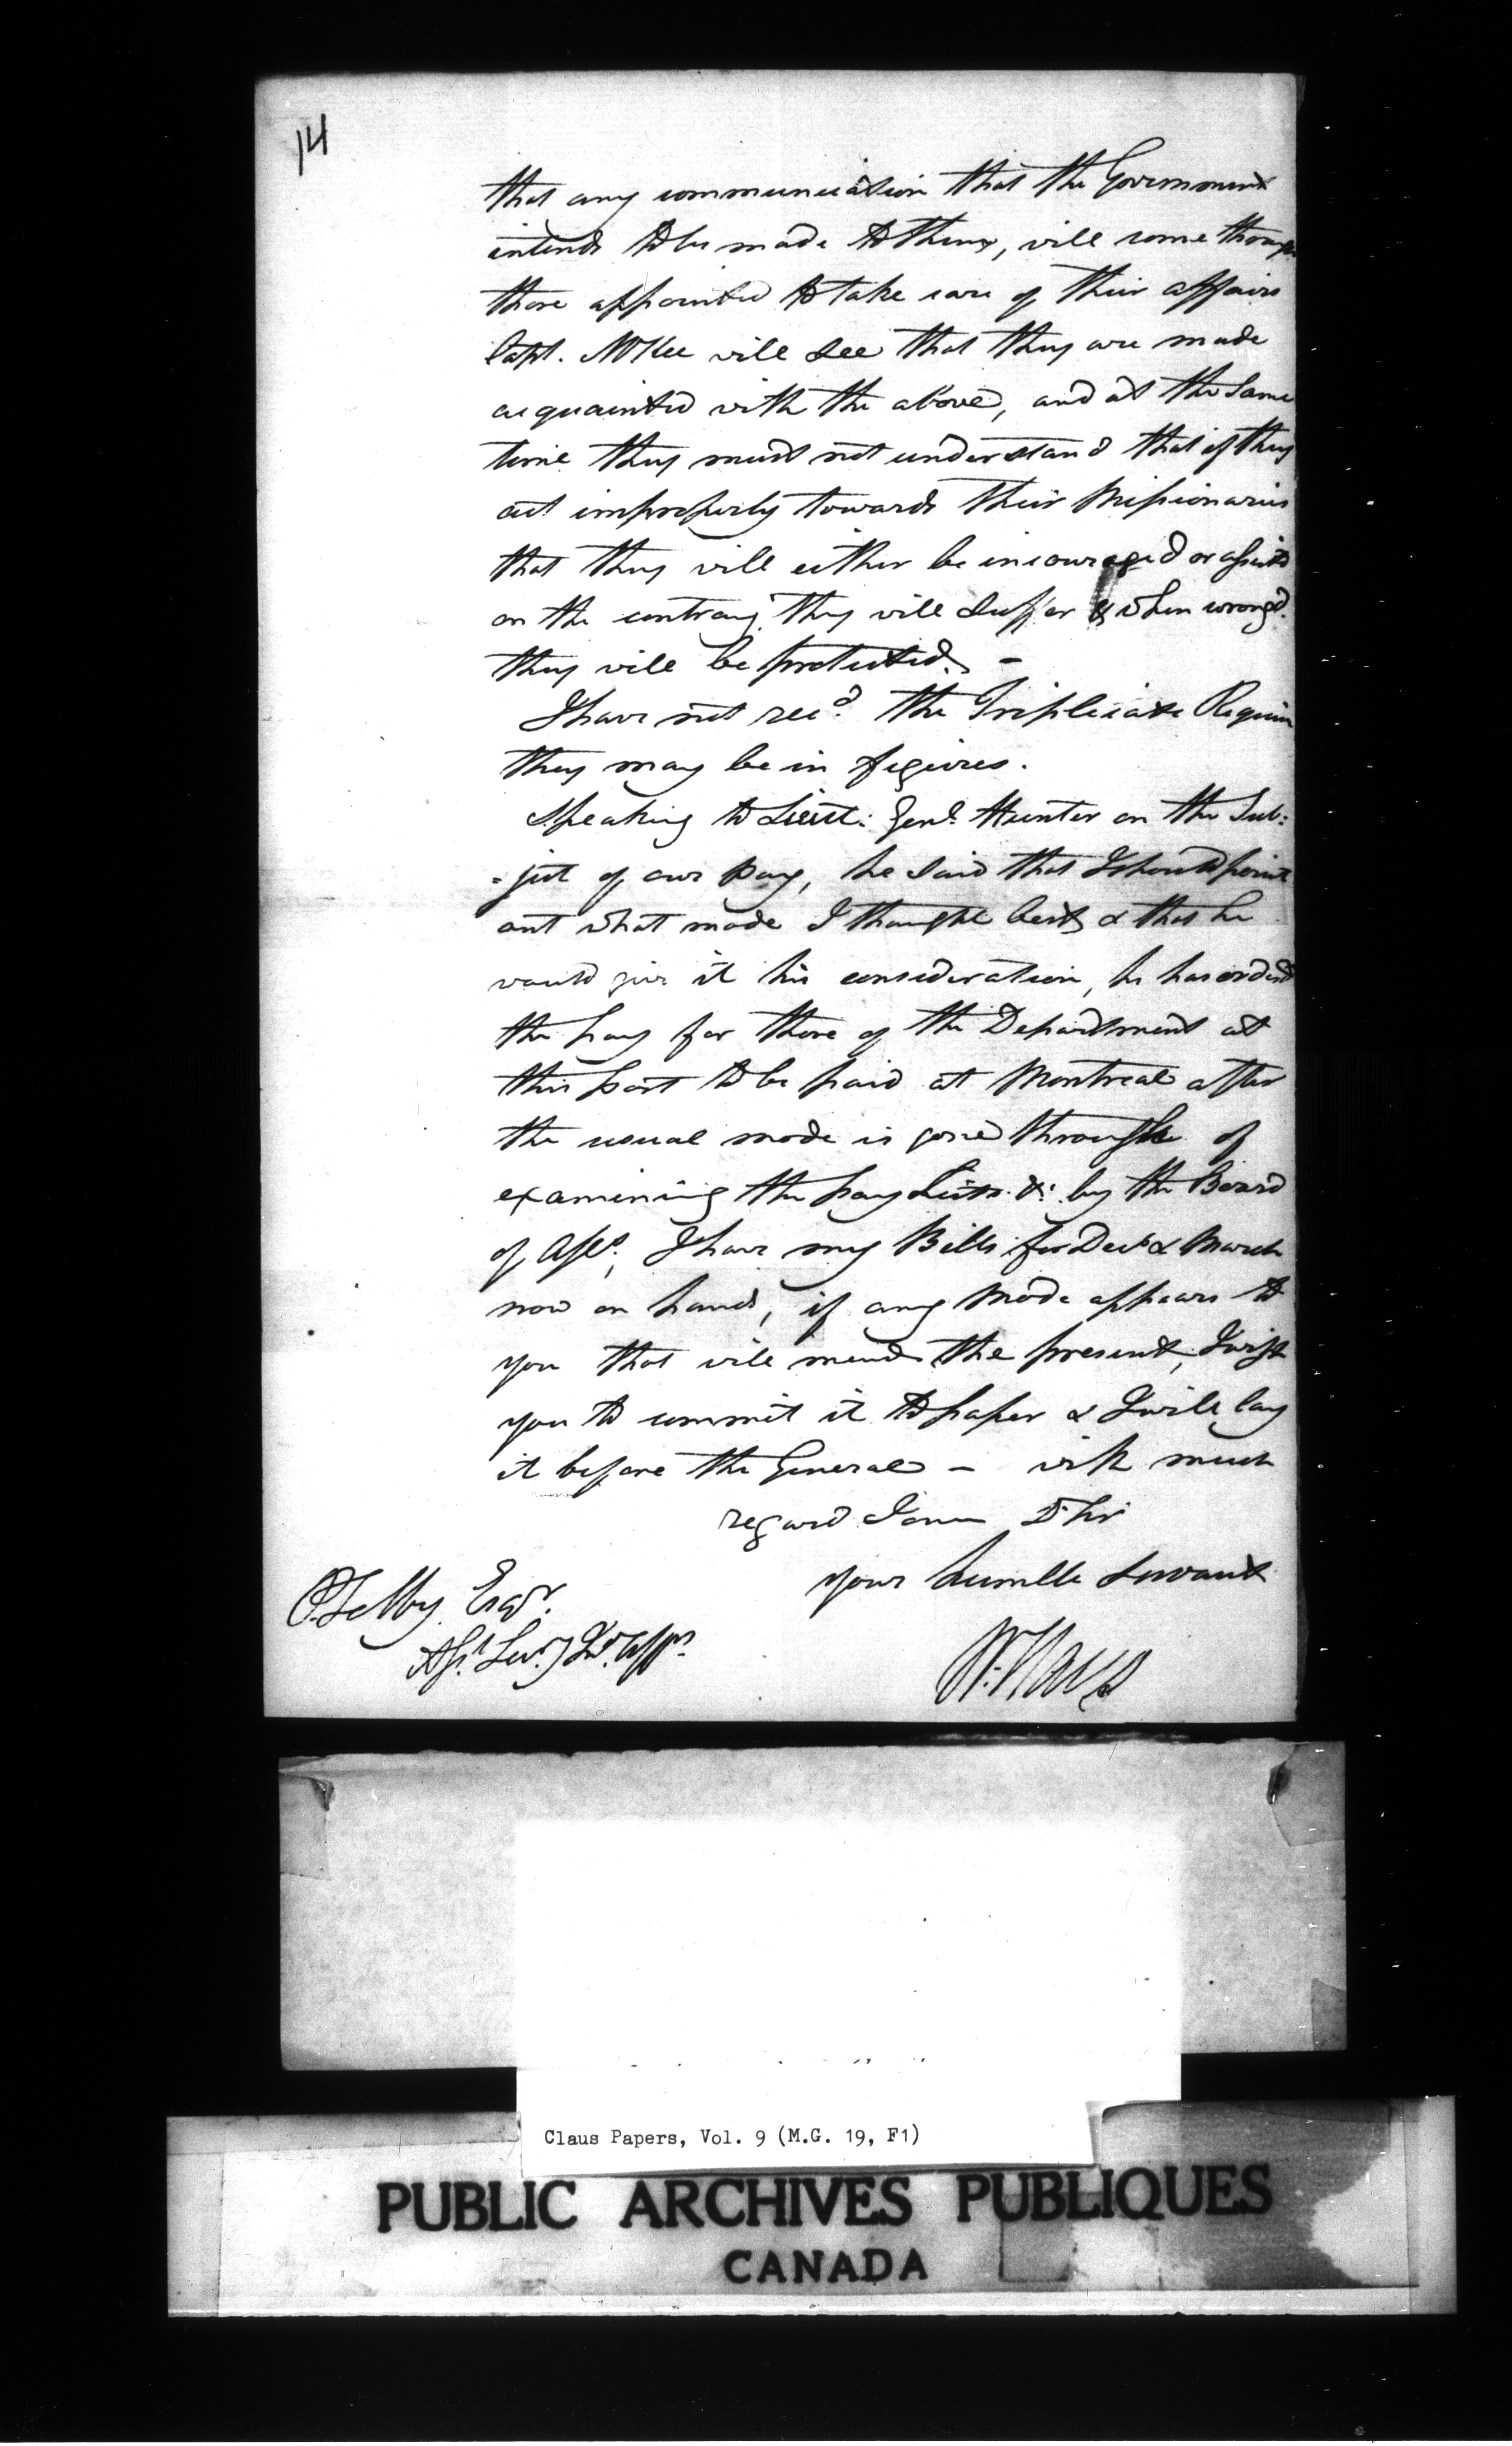 14
that any communication that the Government
intends to be made to them, will come through
those appointed to take care of their affairs
Capt. McKee will see that they are made
acquainted with the above, and at the same
time they must not understand that if they
act improperly towards their Missionaries
that they will either be incouraged or assisted
on the contrary they will suffer & when wrong'd
they will be protected. –
I have not rec'd. the Triplicate Requin
they may be in figures.
Speaking to Lieut: Genl. Hunter on the Sub:
=ject of our pay, he said that I should point
out what mode I thought best & that he
would give it his consideration, he has orderd
the pay for those of the Department at
this post to be paid at Montreal after
the usual mode is gone through of
examining the pay Lists &c: by the Board
of Accts, I have my Bills for Decr & March
now on hand, if any Mode appears to
you that will mend the present, I wish
you to commit it to paper & I will lay
it before the General – with much
regard I am D Sir
your humble Servant
W. Claus
P. Selby Esqr.
Asst. Secy. Ind. Affrs.
Claus Papers, Vol. 9 (M.G. 19, F1)
PUBLIC ARCHIVES PUBLIQUES
CANADA